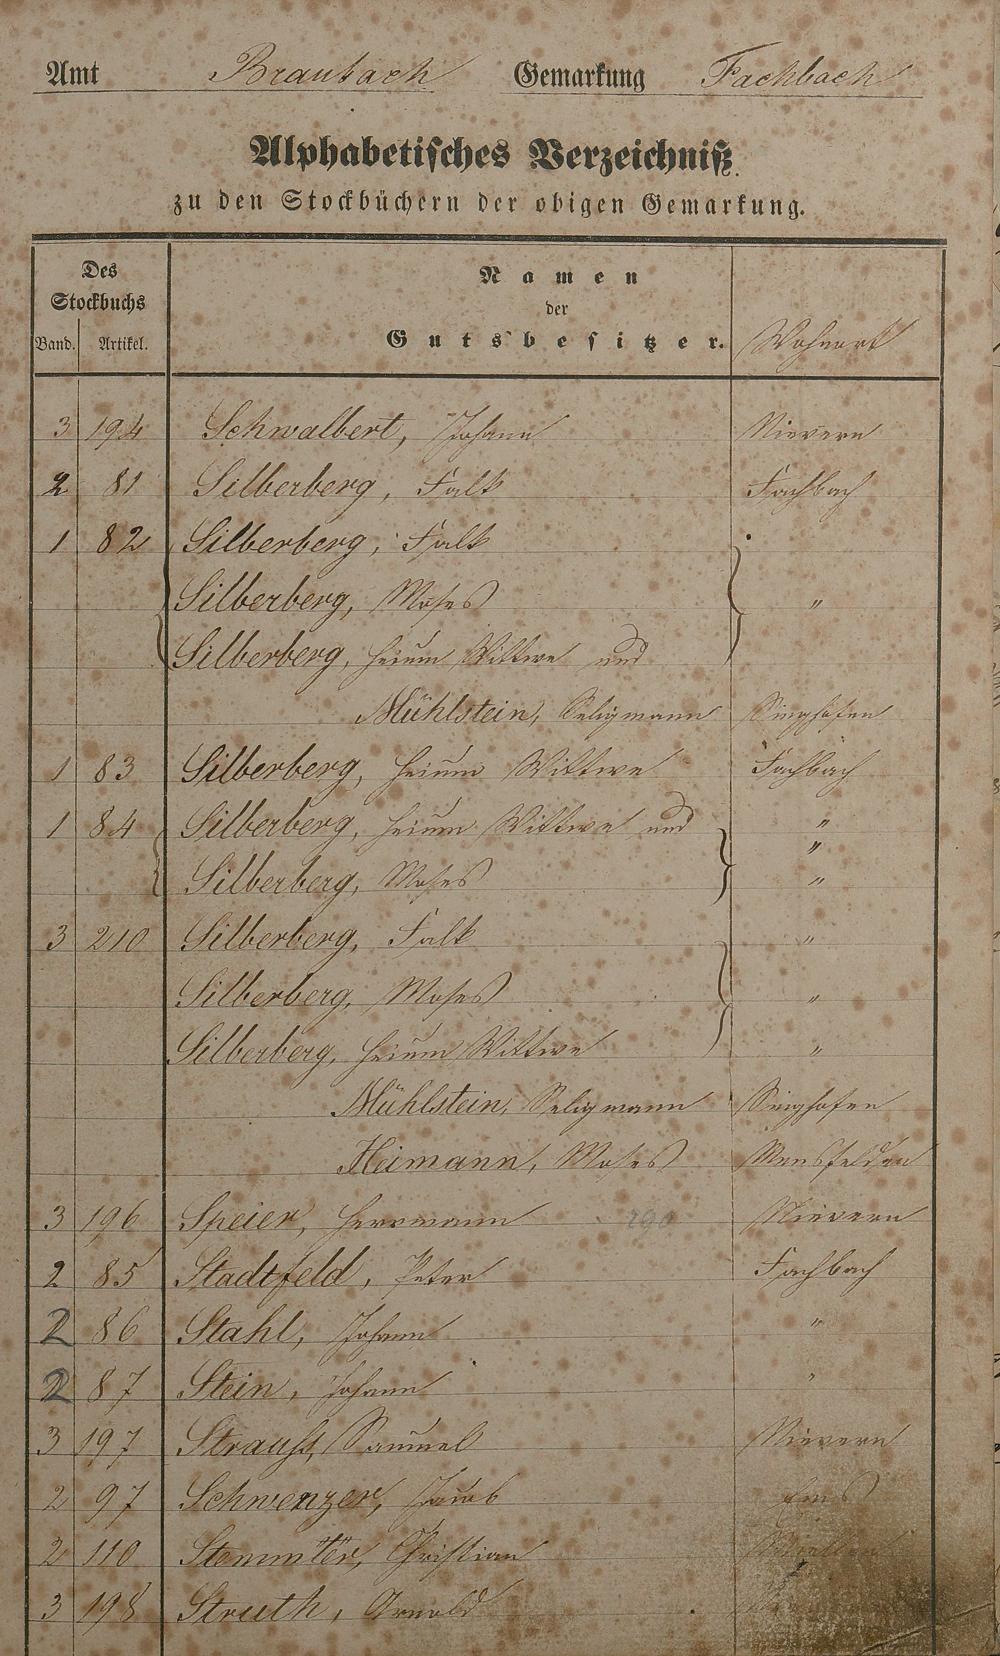 Amt Braubach Gemarkung Fachbach
Alphabetisches Verzeichniß
zu den Stockbüchern der obigen Gemarkung.
Des
Stockbuchs
Band. Artikel.
Namen
der
Gutsbesitzer.
Wohnort
3 194 Schwalbert, Johann Nievern
2 81 Silberberg, Falk Fachbach
1 82 Silberberg, Falk
Silberberg, Moses "
Silberberg, Heium Wittwe und
Mühlstein, Seligmann Singhofen
1 83 Silberberg, Heium Wittwe Fachbach
1 84 Silberberg, Heium Wittwe und "
"
Silberberg, Moses "
3 210 Silberberg, Falk "
Silberberg, Moses "
Silberberg, Heium Wittwe "
Mühlstein, Seligmann Singhofen
Heimann, Moses Mensfelden
3 196 Speier, Herrmann 190 Nievern
2 85 Stadtfeld, Peter Fachbach
2 86 Stahl, Johann "
2 87 Stein, Johann "
3 197 Strauß, Samuel Nievern
2 97 Schwenzer, Jacob Ems
2 110 Stemmler, Christian Miellen
3 198 Struth, Arnold